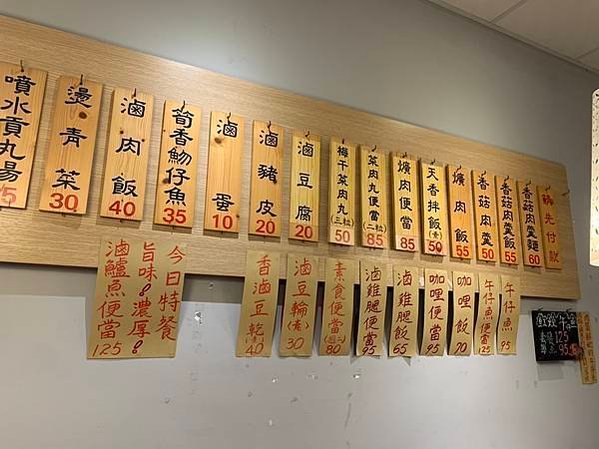 噴水貢丸湯
燙青菜 30
滷肉飯 40
筍香魩仔魚 35
滷蛋 10
滷豬皮 20
滷豆腐 20
梅干菜肉丸(三粒) 50
菜肉丸便當(二粒) 85
爌肉便當 85
天香拌飯(素) 50
爌肉飯 55
香菇肉羹 50
香菇肉羹飯 55
香菇肉羹麵 60
請先付款
今日特餐
旨味&濃厚&
滷鱸魚便當
125
香滷豆乾(素) 40
滷豆輪(素) 30
素食便當 80
滷雞腿便當 95
滷雞腿飯 65
咖哩便當 95
咖哩飯 70
午仔魚便當 125
午仔魚 95
125
95